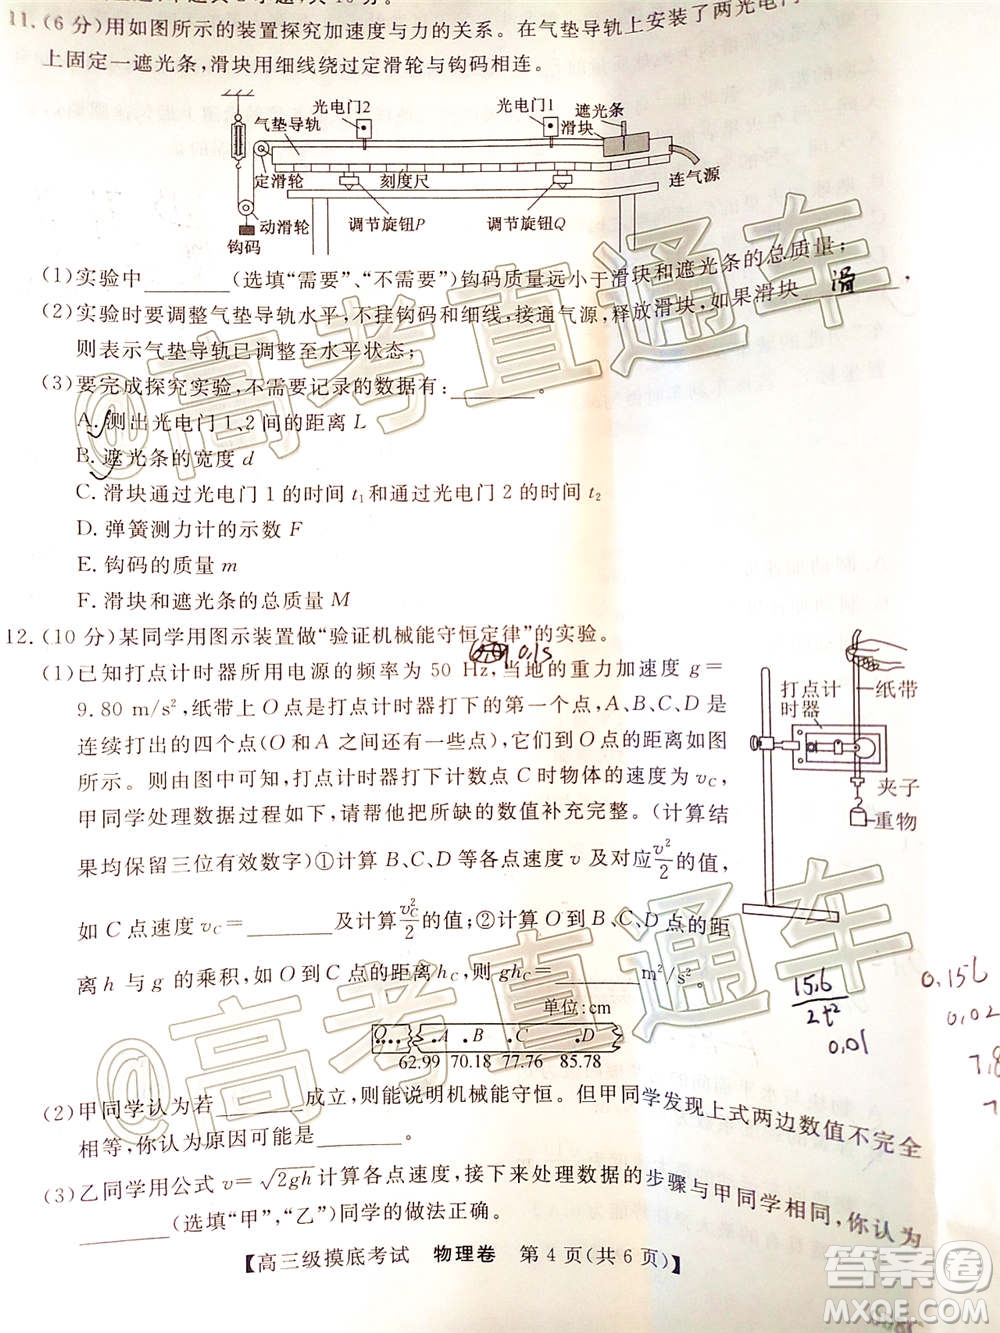 11.(6分)用如图所示的装置探究加速度与力的关系。在气垫导轨上安装了两光电门
上固定一遮光条,滑块用细线绕过定滑轮与钩码相连。
光电门2
光电门1
遮光条
气垫导轨
滑块
定滑轮
刻度尺
连气源
动滑轮
调节旋钮P
调节旋钮Q
钩码
(1)实验中________(选填“需要”、“不需要”)钩码质量远小于滑块和遮光条的总质量;
(2)实验时要调整气垫导轨水平,不挂钩码和细线,接通气源,释放滑块,如果滑块________
则表示气垫导轨已调整至水平状态;
(3)要完成探究实验,不需要记录的数据有:________。
A.测出光电门1、2间的距离L
B.遮光条的宽度d
C.滑块通过光电门1的时间t₁和通过光电门2的时间t₂
D.弹簧测力计的示数F
E.钩码的质量m
F.滑块和遮光条的总质量M
12.(10分)某同学用图示装置做“验证机械能守恒定律”的实验。
0.1s
(1)已知打点计时器所用电源的频率为50 Hz,当地的重力加速度g=
9.80 m/s²,纸带上O点是打点计时器打下的第一个点,A、B、C、D是
连续打出的四个点(O和A之间还有一些点),它们到O点的距离如图
所示。则由图中可知,打点计时器打下计数点C时物体的速度为v_C,
甲同学处理数据过程如下,请帮他把所缺的数值补充完整。(计算结
果均保留三位有效数字)①计算B、C、D等各点速度v及对应v²/2的值,
如C点速度v_C=________及计算v_C²/2的值;②计算O到B、C、D点的距
离h与g的乘积,如O到C点的距离h_C,则gh_C=________m²/s²。
打点计
时器
纸带
夹子
重物
15.6
2t²
0.01
0.156
0.02
单位:cm
O A B C D
62.99 70.18 77.76 85.78
(2)甲同学认为若________成立,则能说明机械能守恒。但甲同学发现上式两边数值不完全
相等,你认为原因可能是________。
(3)乙同学用公式v=√2gh计算各点速度,接下来处理数据的步骤与甲同学相同,你认为
________(选填“甲”,“乙”)同学的做法正确。
【高三级摸底考试 物理卷 第4页(共6页)】
@高考直通车
@高考直通车
答案圈
MXQE.COM